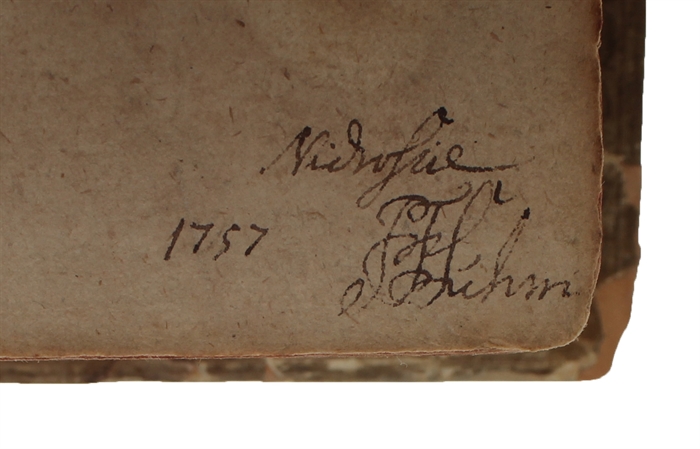 Nidrosiæ
1757
PFSuhm